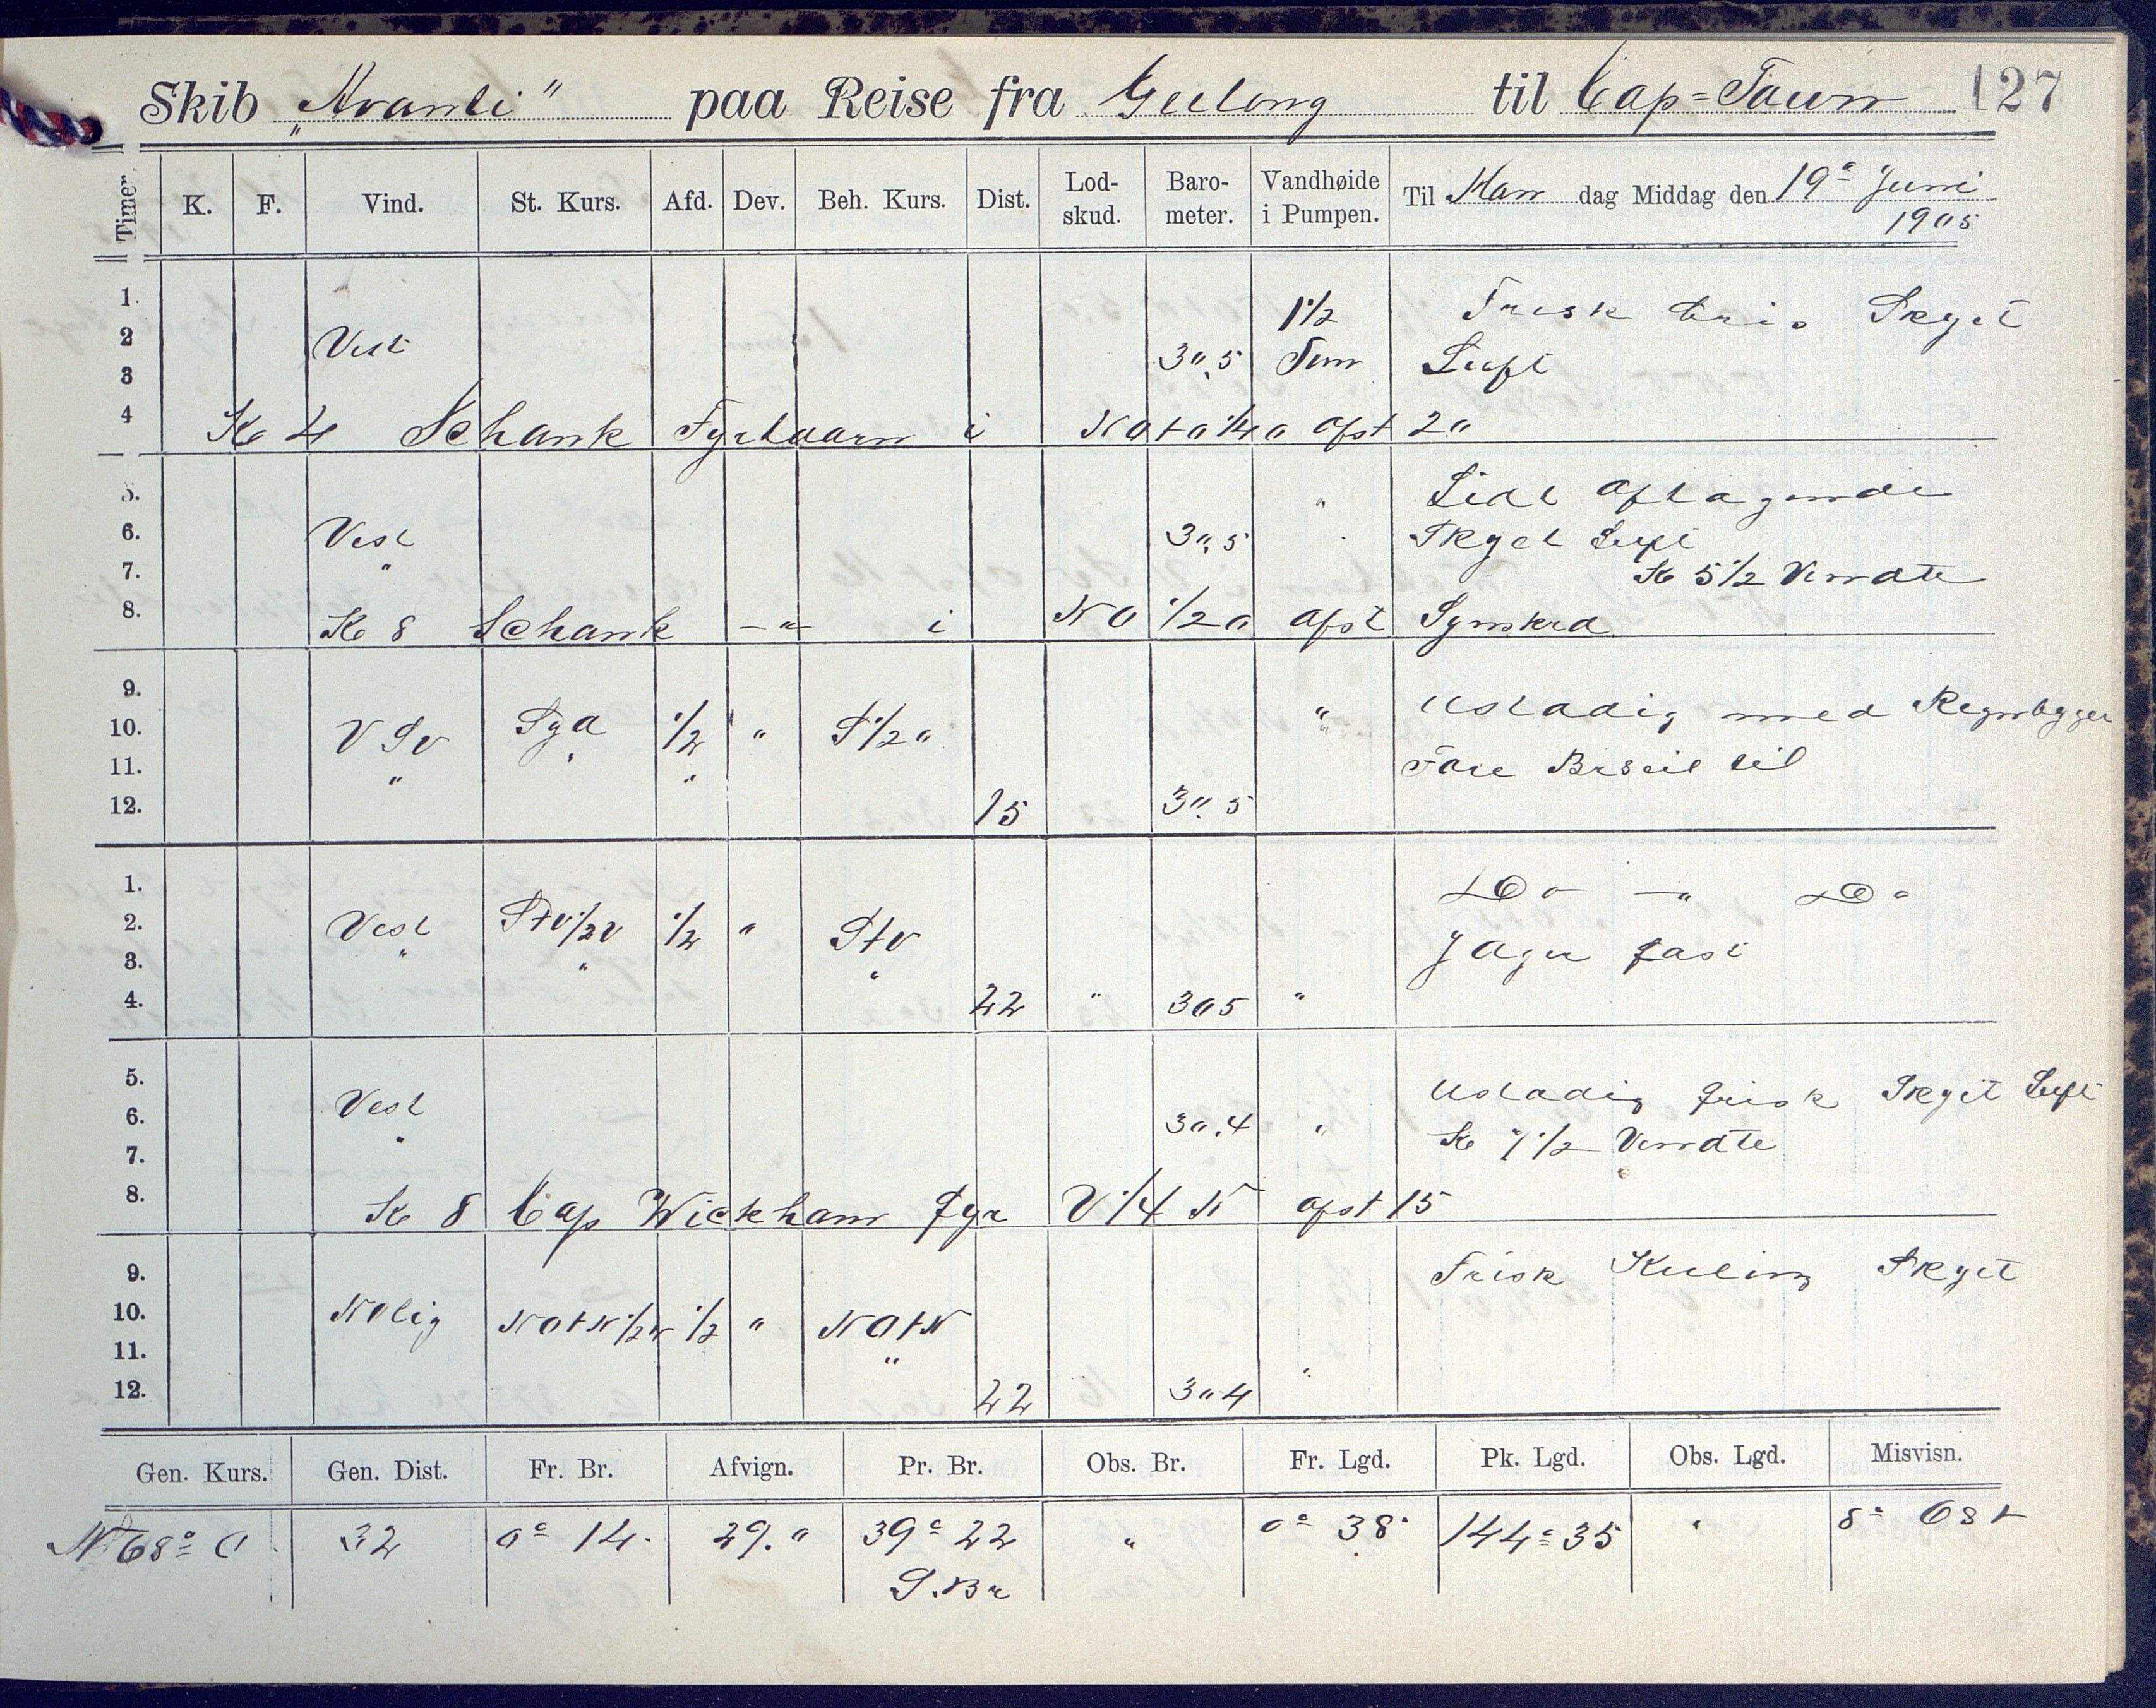 Skib „Avanti" paa Reise fra Geelong til Cap=Town 127
Timer. K. F. Vind. St. Kurs. Afd. Dev. Beh. Kurs. Dist. Lod-skud. Baro-meter. Vandhøide i Pumpen. Til Man dag Middag den 19e Juni 1905
1. 1 1/2 Frisk bris Skyet
2 Vest 30,5 Tom Luft
3
4 K 4 Schank Fyrtaarn i NOtO 1/4 O afst 20
5. " Lidt aftagende
6. Vest 30,5 Skyet Luft
7. " K 5 1/2 Vendte
8. K 8 Schank -"- i NO 1/2 O afst Synskrd
9. " Ustadig med Regnbyger
10. VSV SyO 1/2 " S 1/2 O "
11. " " " Fore Brseil til
12. 15 30.5
1. Do -"- Do
2. Vest StV 1/2 V 1/2 " StV
3. " " " Jager fast
4. 22 " 305 "
5. Ustadig frisk Skyet Luft
6. Vest 30.4 "
7. " K 7 1/2 Vendte
8. K 8 Cap Wickham fyr V 1/4 N afst 15
9. Frisk Kuling Skyet
10. Nolig NOtN 1/2 N 1/2 " NOtN
11. " "
12. 22 304
Gen. Kurs. Gen. Dist. Fr. Br. Afvign. Pr. Br. Obs. Br. Fr. Lgd. Pk. Lgd. Obs. Lgd. Misvisn.
N 68° O 32 0° 14 29." 39° 22 " 0° 38 144° 35 " 8° Ost
S. Br